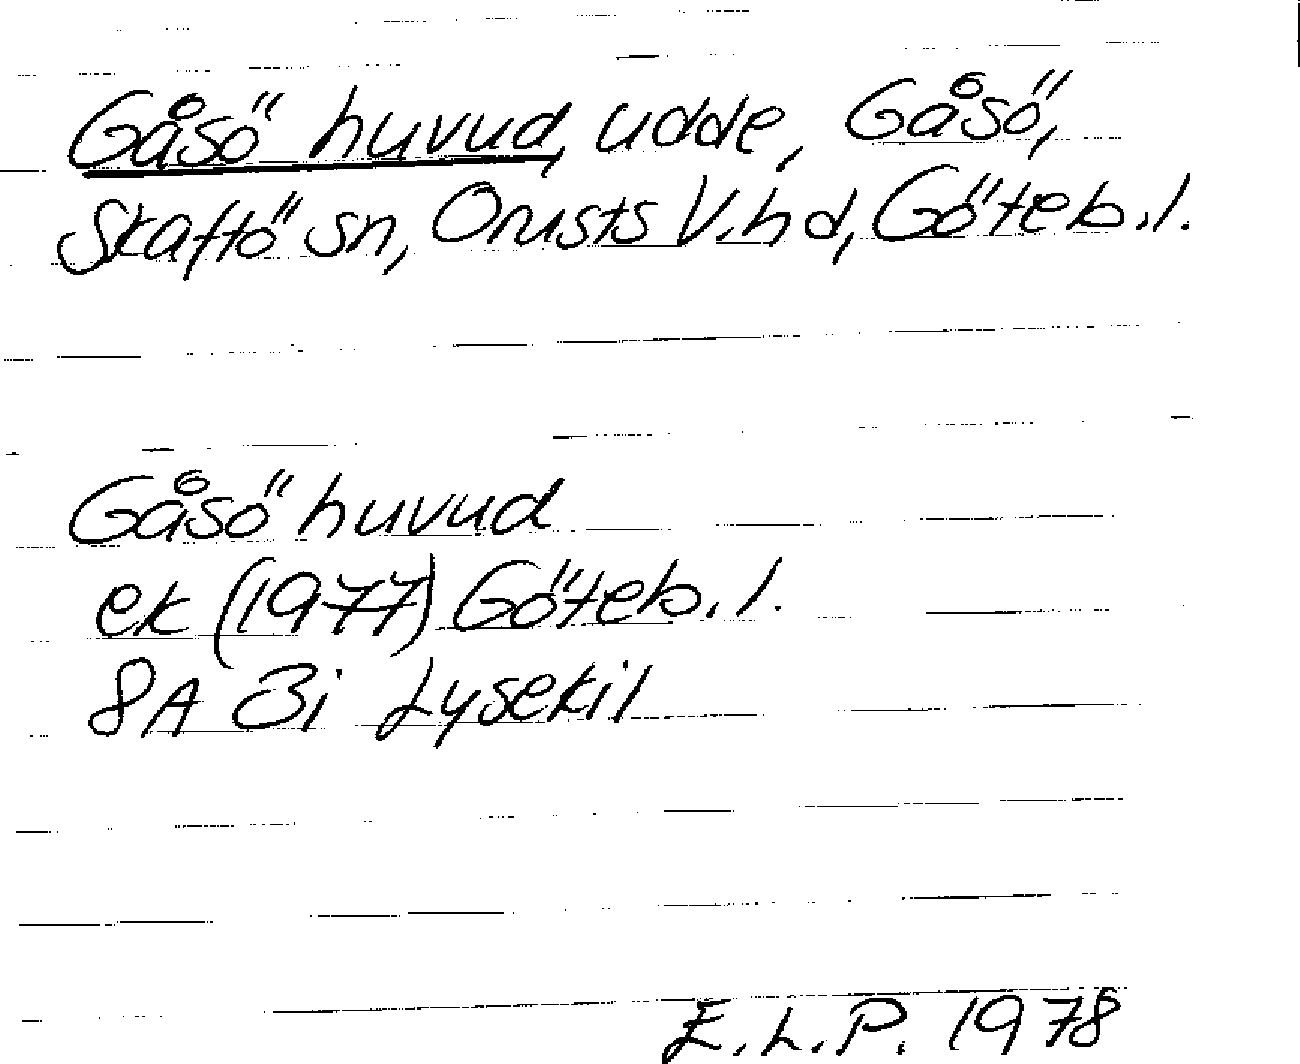 Gåsö huvud, udde, Gåsö,
Skaftö sn, Orusts V.hd, Göteb.l.
Gåsö huvud
ek (1977) Göteb.l.
8A 3i Lysekil
E.L.P. 1978